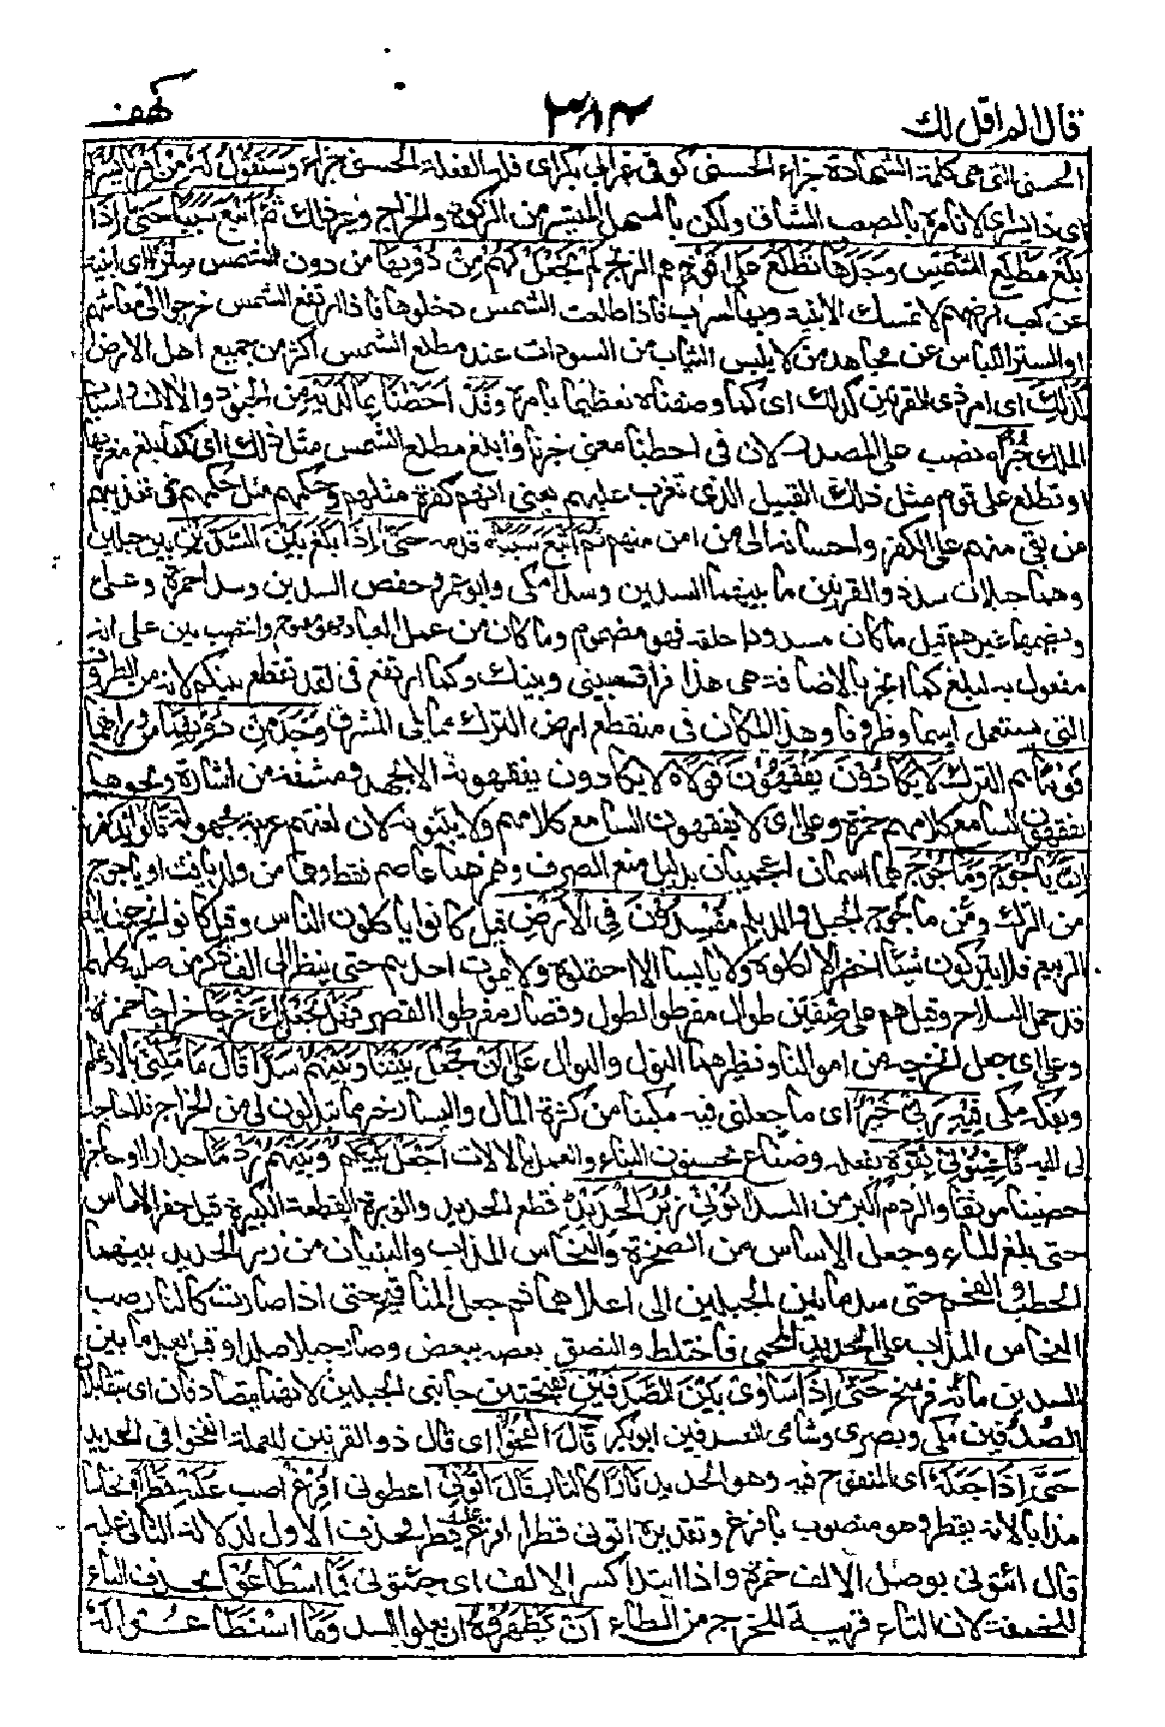 قال الم اقل لك ٣٨٤ كهف
الحسنى التي هي كلمة الشهادة جزاء الحسنى كوفى غير ابى بكر اى فله الفعلة الحسنى جزاء وَسَنَقُولُ لَهُ مِنْ اَمْرِنَا يُسْرًا
اى ذا يسر اى لا نامره بالصعب الشاق ولكن بالسهل المتيسر من الزكوة والخراج وغير ذلك ثُمَّ اَتْبَعَ سَبَبًا حَتّٰى اِذَا
بَلَغَ مَطْلِعَ الشَّمْسِ وَجَدَهَا تَطْلُعُ عَلٰى قَوْمٍ هم الزنج لَمْ نَجْعَلْ لَهُمْ مِنْ دُوْنِهَا من دون الشمس سِتْرًا اى ابنية
عن كعب ارضهم لا تمسك الابنية وبها اسراب فاذا طلعت الشمس دخلوها فاذا ارتفع الشمس خرجوا الى معاشهم
او الستر اللباس عن مجاهد من لا يلبس الثياب من السودان عند مطلع الشمس اكثر من جميع اهل الارض
كَذٰلِكَ اى امر ذى القرنين كذلك اى كما وصفناه تعظيما لامره وَقَدْ اَحَطْنَا بِمَا لَدَيْهِ من الجنود والآلات واسباب
الملك خُبْرًا نصب على المصدر لان فى احطنا معنى خبرنا او بلغ مطلع الشمس مثل ذلك اى كما بلغ مغربها
او تطلع على قوم مثل ذلك القبيل الذى تغرب عليهم يعنى انهم كفرة مثلهم وحكمهم مثل حكمهم فى تعذيبهم
من بقى منهم على الكفر واحسانه الى من امن منهم ثُمَّ اَتْبَعَ سَبَبًا حَتّٰى اِذَا بَلَغَ بَيْنَ السَّدَّيْنِ بين جبلين
وهما جبلان سد ذو القرنين ما بينهما السدين وسدا مكى وابو عمرو وحفص السدين وسدا حمزة وعلى
وبضمهما غيرهم قيل ما كان مسدودا خلقة فهو مضموم وما كان من عمل العباد فهو مفتوح وانتصب بين على انه
مفعول به لبلغ كما انجر بالاضافة فى هذا فراق بينى وبينك وكما ارتفع فى لقد تقطع بينكم لانه من الظروف
التى يستعمل اسما وظروفا وهذا المكان فى منقطع ارض الترك مما يلى المشرق وَجَدَ مِنْ دُوْنِهِمَا من ورائهما
قَوْمًا هم الترك لَا يَكَادُوْنَ يَفْقَهُوْنَ قَوْلًا اى لا يكادون يفقهونه الا بجهد ومشقة من اشارة ونحوها
يفقهون السامع كلامهم حمزة وعلى اى لا يفقهون السامع كلامهم ولا يبينونه لان لغتهم غريبة مجهولة قَالُوْا يٰذَا الْقَرْنَيْنِ
اِنَّ يَاْجُوْجَ وَمَاْجُوْجَ هما اسمان اعجميان بدليل منع الصرف وهمزهما عاصم فقط وهما من ولد يافث او ياجوج
من الترك وماجوج من الجيل والديلم مُفْسِدُوْنَ فِى الْاَرْضِ قيل كانوا ياكلون الناس وقيل كانوا يخرجون ايام
الربيع فلا يتركون شيئا اخضر الا اكلوه ولا يابسا الا احتملوه ولا يموت احدهم حتى ينظر الى الف ذكر من صلبه كلهم
قد حمل السلاح وقيل هم على صنفين طوال مفرطوا الطول وقصار مفرطوا القصر فَهَلْ نَجْعَلُ لَكَ خَرْجًا خراجا حمزة
وعلى اى جعل نخرجه من اموالنا ونظيرهما النول والنوال عَلٰى اَنْ تَجْعَلَ بَيْنَنَا وَبَيْنَهُمْ سَدًّا قَالَ مَا مَكَّنِّى بالادغام
وبفكه مكى فِيْهِ رَبِّىْ خَيْرٌ اى ما جعلنى فيه مكينا من كثرة المال واليسار خير مما تبذلون لى من الخراج فلا حاجة
لى اليه فَاَعِيْنُوْنِىْ بِقُوَّةٍ بفعلة وصناع يحسنون البناء والعمل بالآلات اَجْعَلْ بَيْنَكُمْ وَبَيْنَهُمْ رَدْمًا جدارا او حاجزا
حصينا موثقا والردم اكبر من السد اٰتُوْنِىْ زُبَرَ الْحَدِيْدِ قطع الحديد والزبرة القطعة الكبيرة قيل حفر الاساس
حتى بلغ الماء وجعل الاساس من الصخرة والنحاس المذاب والبنيان من زبر الحديد بينهما
الحطب والفحم حتى سد ما بين الجبلين الى اعلاهما ثم جعل المنافيخ حتى اذا صارت كالنار صب
النحاس المذاب على الحديد المحمى فاختلط والتصق بعضه ببعض وصار جبلا صلدا وقيل بعد ما بين
السدين مائة فرسخ حَتّٰى اِذَا سَاوٰى بَيْنَ الصَّدَفَيْنِ بفتحتين جانبى الجبلين لانهما يتصادفان اى يتقابلان
الصُدُفين مكى وبصرى وشامى الصدفين ابو بكر قَالَ انْفُخُوْا اى قال ذو القرنين للعملة انفخوا فى الحديد
حَتّٰى اِذَا جَعَلَهٗ اى المنفوخ فيه وهو الحديد نَارًا كالنار قَالَ اٰتُوْنِىْ اعطونى اُفْرِغْ اصب عَلَيْهِ قِطْرًا نحاسا
مذابا لانه يقطر وهو منصوب بافرغ وتقديره اتونى قطرا افرغ عليه قطرا فحذف الاول لدلالة الثانى عليه
قال ائتونى بوصل الالف حمزة واذا ابتدا كسر الالف اى جيئونى فَمَا اسْطَاعُوْا بحذف التاء
للخفة لان التاء قريبة المخرج من الطاء اَنْ يَّظْهَرُوْهُ ان يعلوا السد وَمَا اسْتَطَاعُوْا لَهٗ